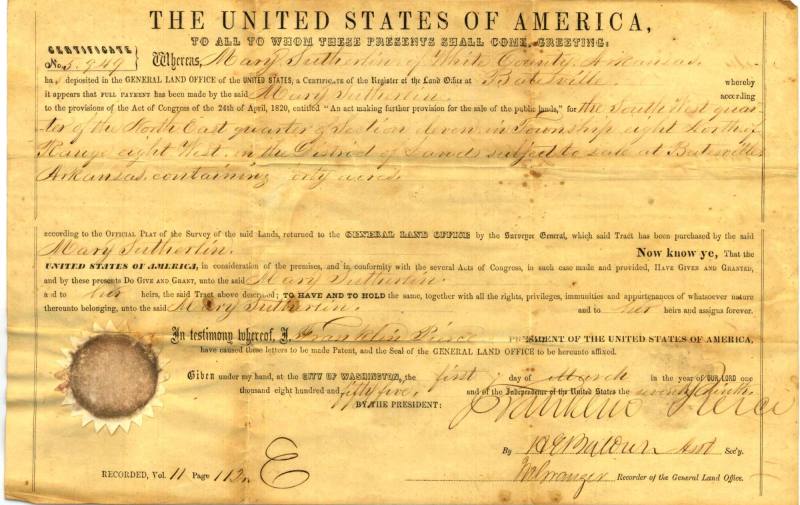 THE UNITED STATES OF AMERICA,
TO ALL TO WHOM THESE PRESENTS SHALL COME, GREETING:
CERTIFICATE
No. 5.949 Whereas, Mary Sutherlin, of White County, Arkansas,
ha deposited in the GENERAL LAND OFFICE of the UNITED STATES, a CERTIFICATE of the Register of the Land Office at Batesville whereby
it appears that FULL PAYMENT has been made by the said Mary Sutherlin. according
to the provisions of the Act of Congress of the 24th of April, 1820, entitled "An act making further provision for the sale of the public lands," for the South West quar-
ter of the North East quarter of Section eleven in Township eight North of
Range eight West, in the District of Lands subject to sale at Batesville
Arkansas, containing forty acres.
according to the OFFICIAL PLAT of the Survey of the said Lands, returned to the GENERAL LAND OFFICE by the Surveyor General, which said Tract has been purchased by the said
Mary Sutherlin. Now know ye, That the
UNITED STATES OF AMERICA, in consideration of the premises, and in conformity with the several Acts of Congress, in such case made and provided, HAVE GIVEN AND GRANTED,
and by these presents DO GIVE AND GRANT, unto the said Mary Sutherlin.
and to her heirs, the said Tract above described; TO HAVE AND TO HOLD the same, together with all the rights, privileges, immunities and appurtenances of whatsoever nature
thereunto belonging, unto the said Mary Sutherlin. and to her heirs and assigns forever.
In testimony whereof, I, Franklin Pierce PRESIDENT OF THE UNITED STATES OF AMERICA,
have caused these letters to be made Patent, and the Seal of the GENERAL LAND OFFICE to be hereunto affixed.
Given under my hand, at the CITY OF WASHINGTON, the first day of March in the year of OUR LORD one
thousand eight hundred and fifty five, and of the Independence of the United States the seventy ninth.
BY THE PRESIDENT: Franklin Pierce
By H E Baldwin Asst Sec'y.
RECORDED, Vol. 11 Page 112 E
N Granger Recorder of the General Land Office.